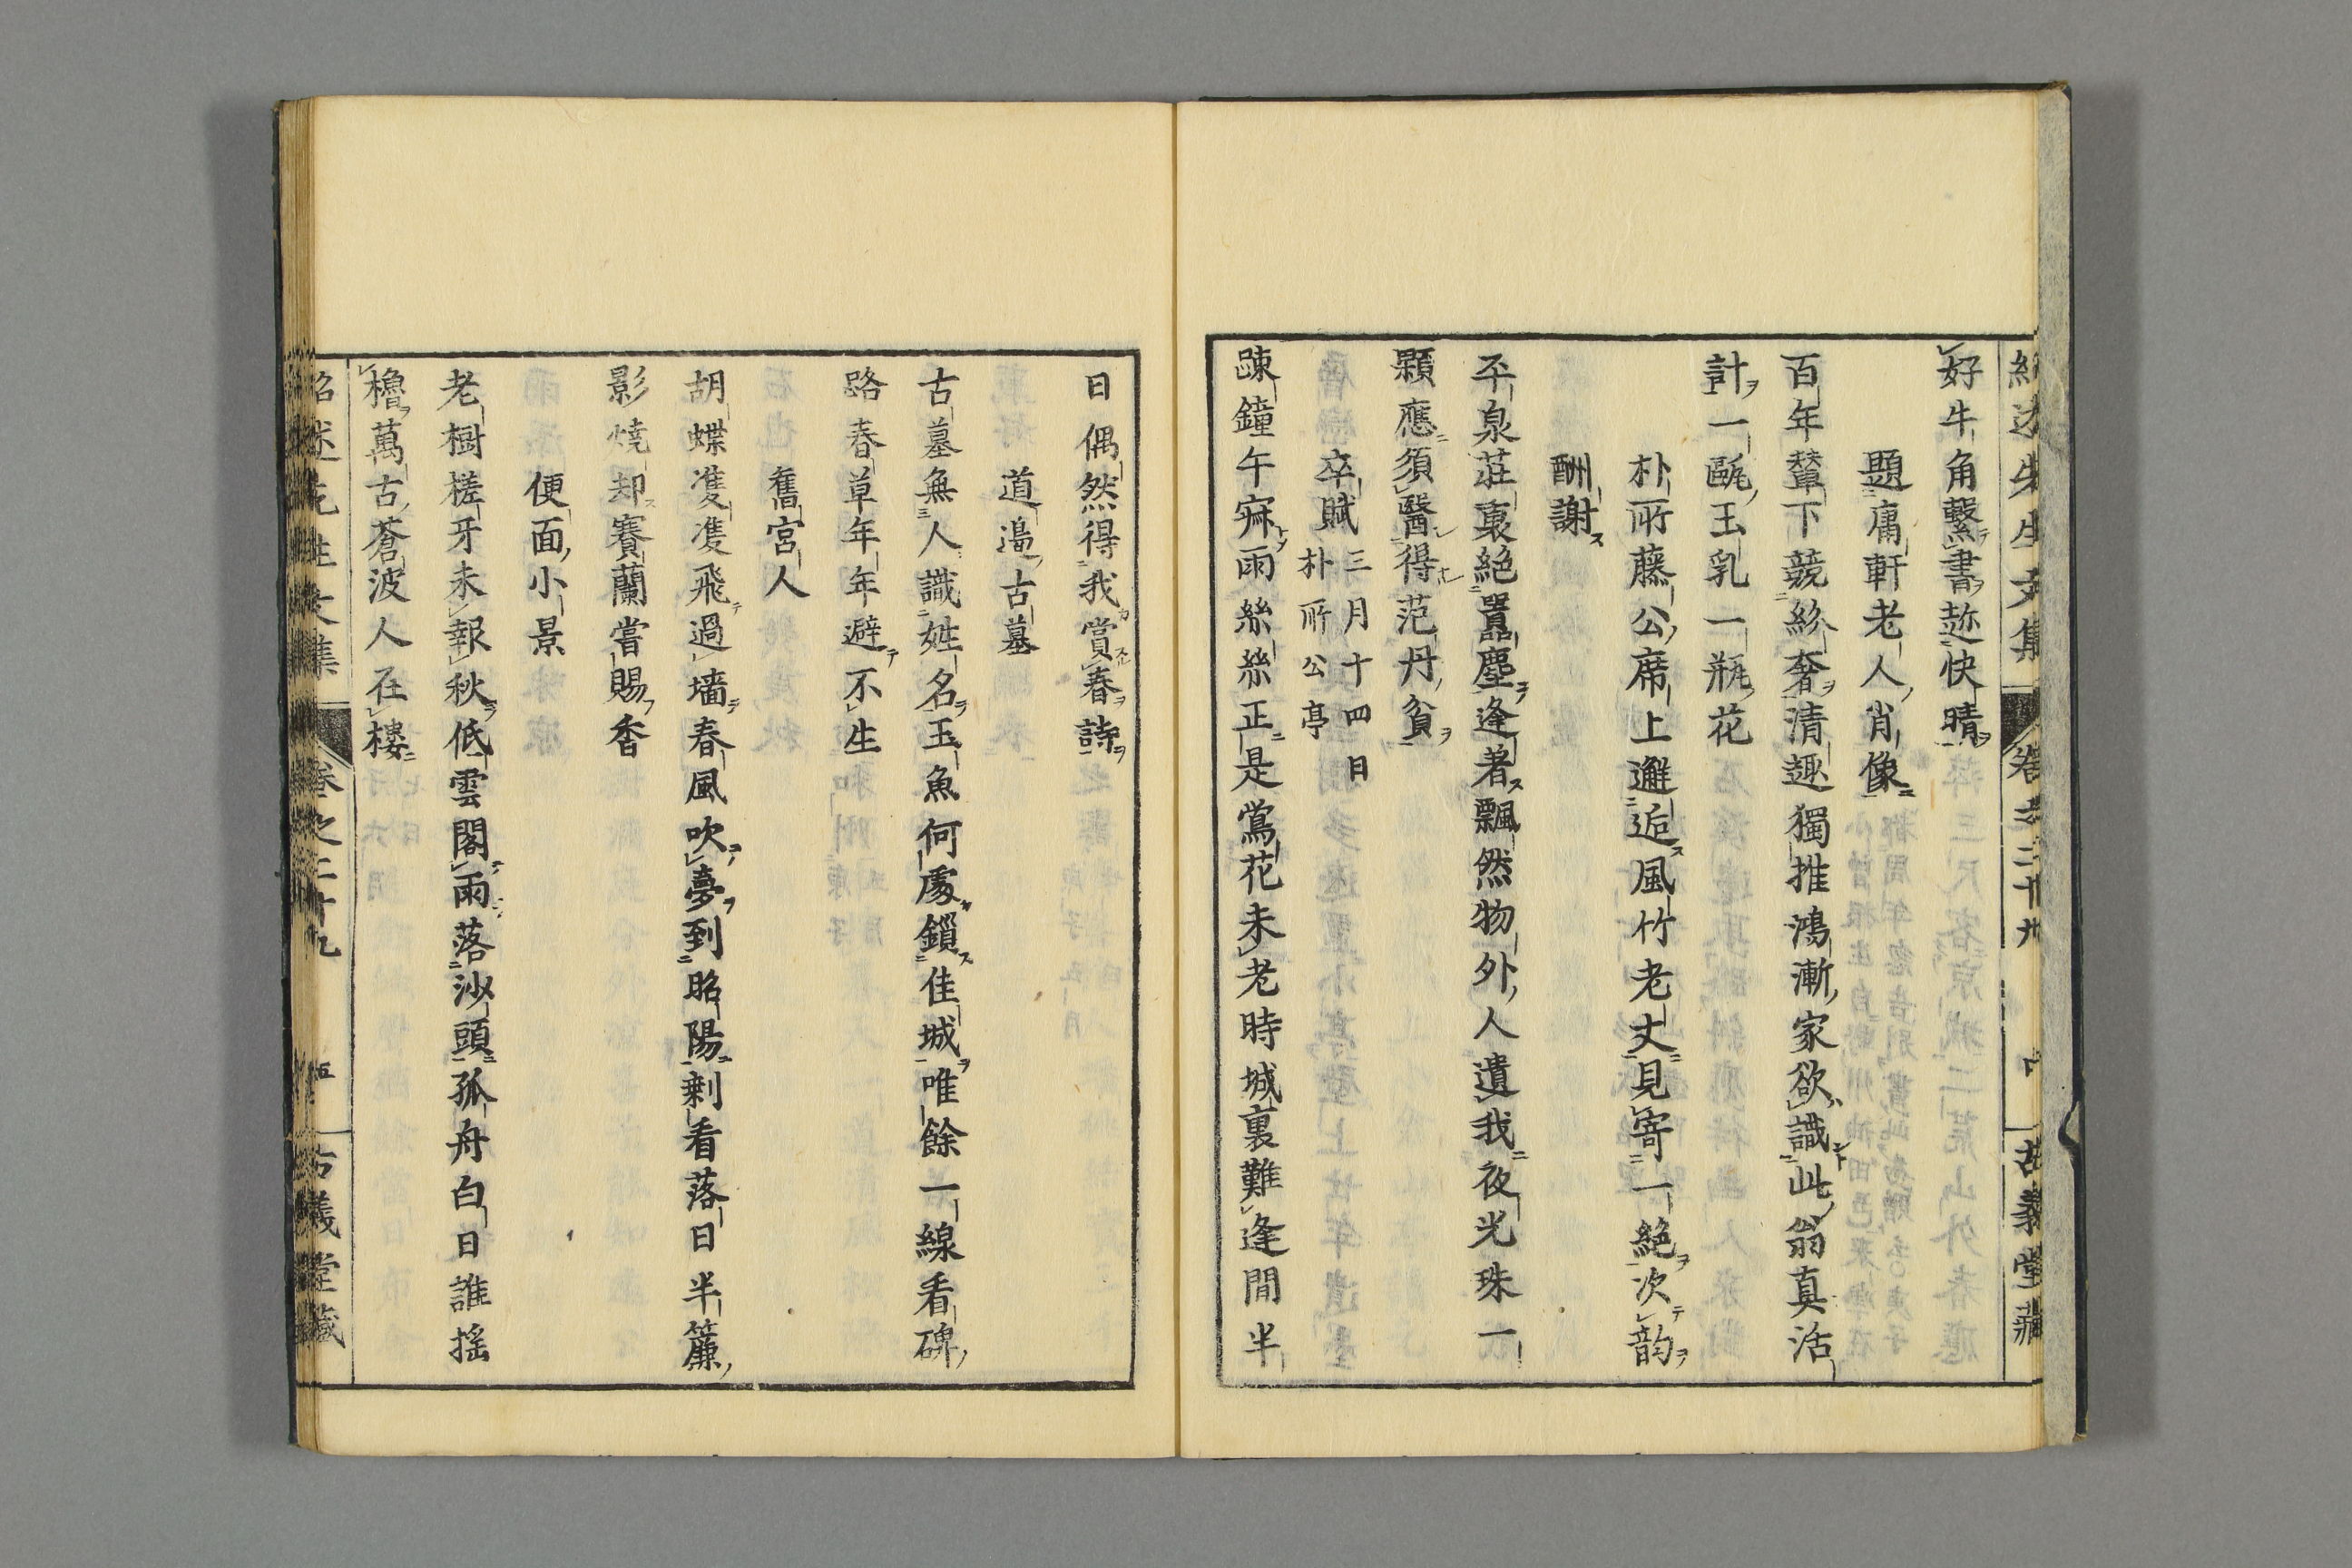 好牛角繫書趂快晴
題庸軒老人肖像
百年輦下競紛奢清趣獨推鴻漸家欲識此翁真活
計一甌玉乳一瓶花
朴所藤公席上邂逅風竹老丈見寄一絶次韵
酬謝
平泉莊裏絶囂塵逢著飄然物外人遺我夜光珠一
顆應須醫得范丹貧
卒賦三月十四日
朴所公亭
踈鐘午寂雨絲絲正是鶯花未老時城裏難逢間半
日偶然得我賞春詩
道邉古墓
古墓無人識姓名玉魚何處鎖佳城唯餘一線看碑
路春草年年避不生
舊宮人
胡蝶雙雙飛過墻春風吹夢到昭陽剩看落日半簾
影燒却賽蘭嘗賜香
便面小景
老樹槎牙未報秋低雲閣雨落沙頭孤舟白日誰揺
櫓萬古蒼波人在樓
卷之二十九
古義堂藏